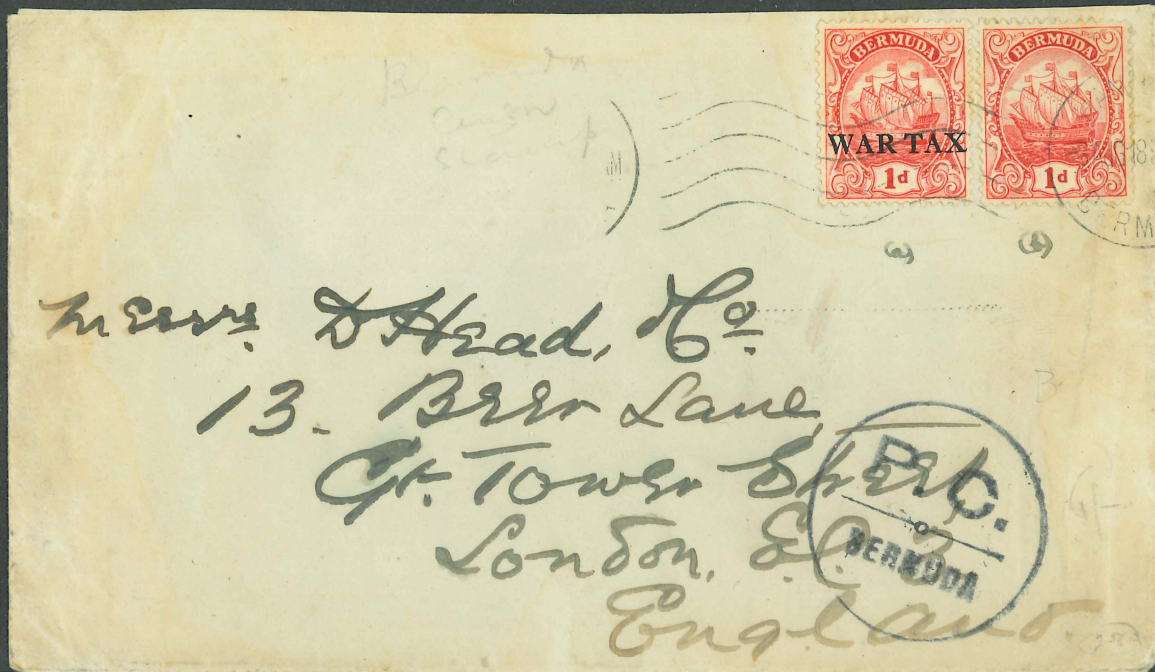 BERMUDA
WAR TAX
1d
BERMUDA
1d
AM
18
BERM
(a)
(b)
Bermuda
Censor
Stamp
Messrs. D Head, & Co.
13. Beer Lane,
Gt. Tower Street
London, E.C. 3
England
P.C.
BERMUDA